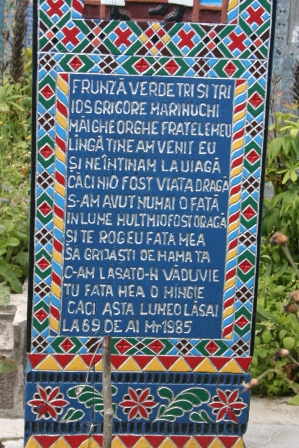 FRUNZĂ VERDE TRI ȘI TRI
IOS GRIGORE MARINUCHI
MĂI GHEORGHE FRATELE MEU
LÎNGĂ TINE AM VENIT EU
ȘI NE ÎNTINAM LA UIAGĂ
CĂCI NIO FOST VIATA DRAGĂ
S-AM AVUT NUMAI O FATĂ
IN LUME MULT MIO FOST DRAGĂ
ȘI TE ROG EU FATA MEA
SA GRIJASTI DE MAMA TA
C-AM LASATO-N VĂDUVIE
TU FATA MEA O MÎNGIE
CĂCI ASTA LUME O LĂSAI
LA 69 DE AI Mr 1985